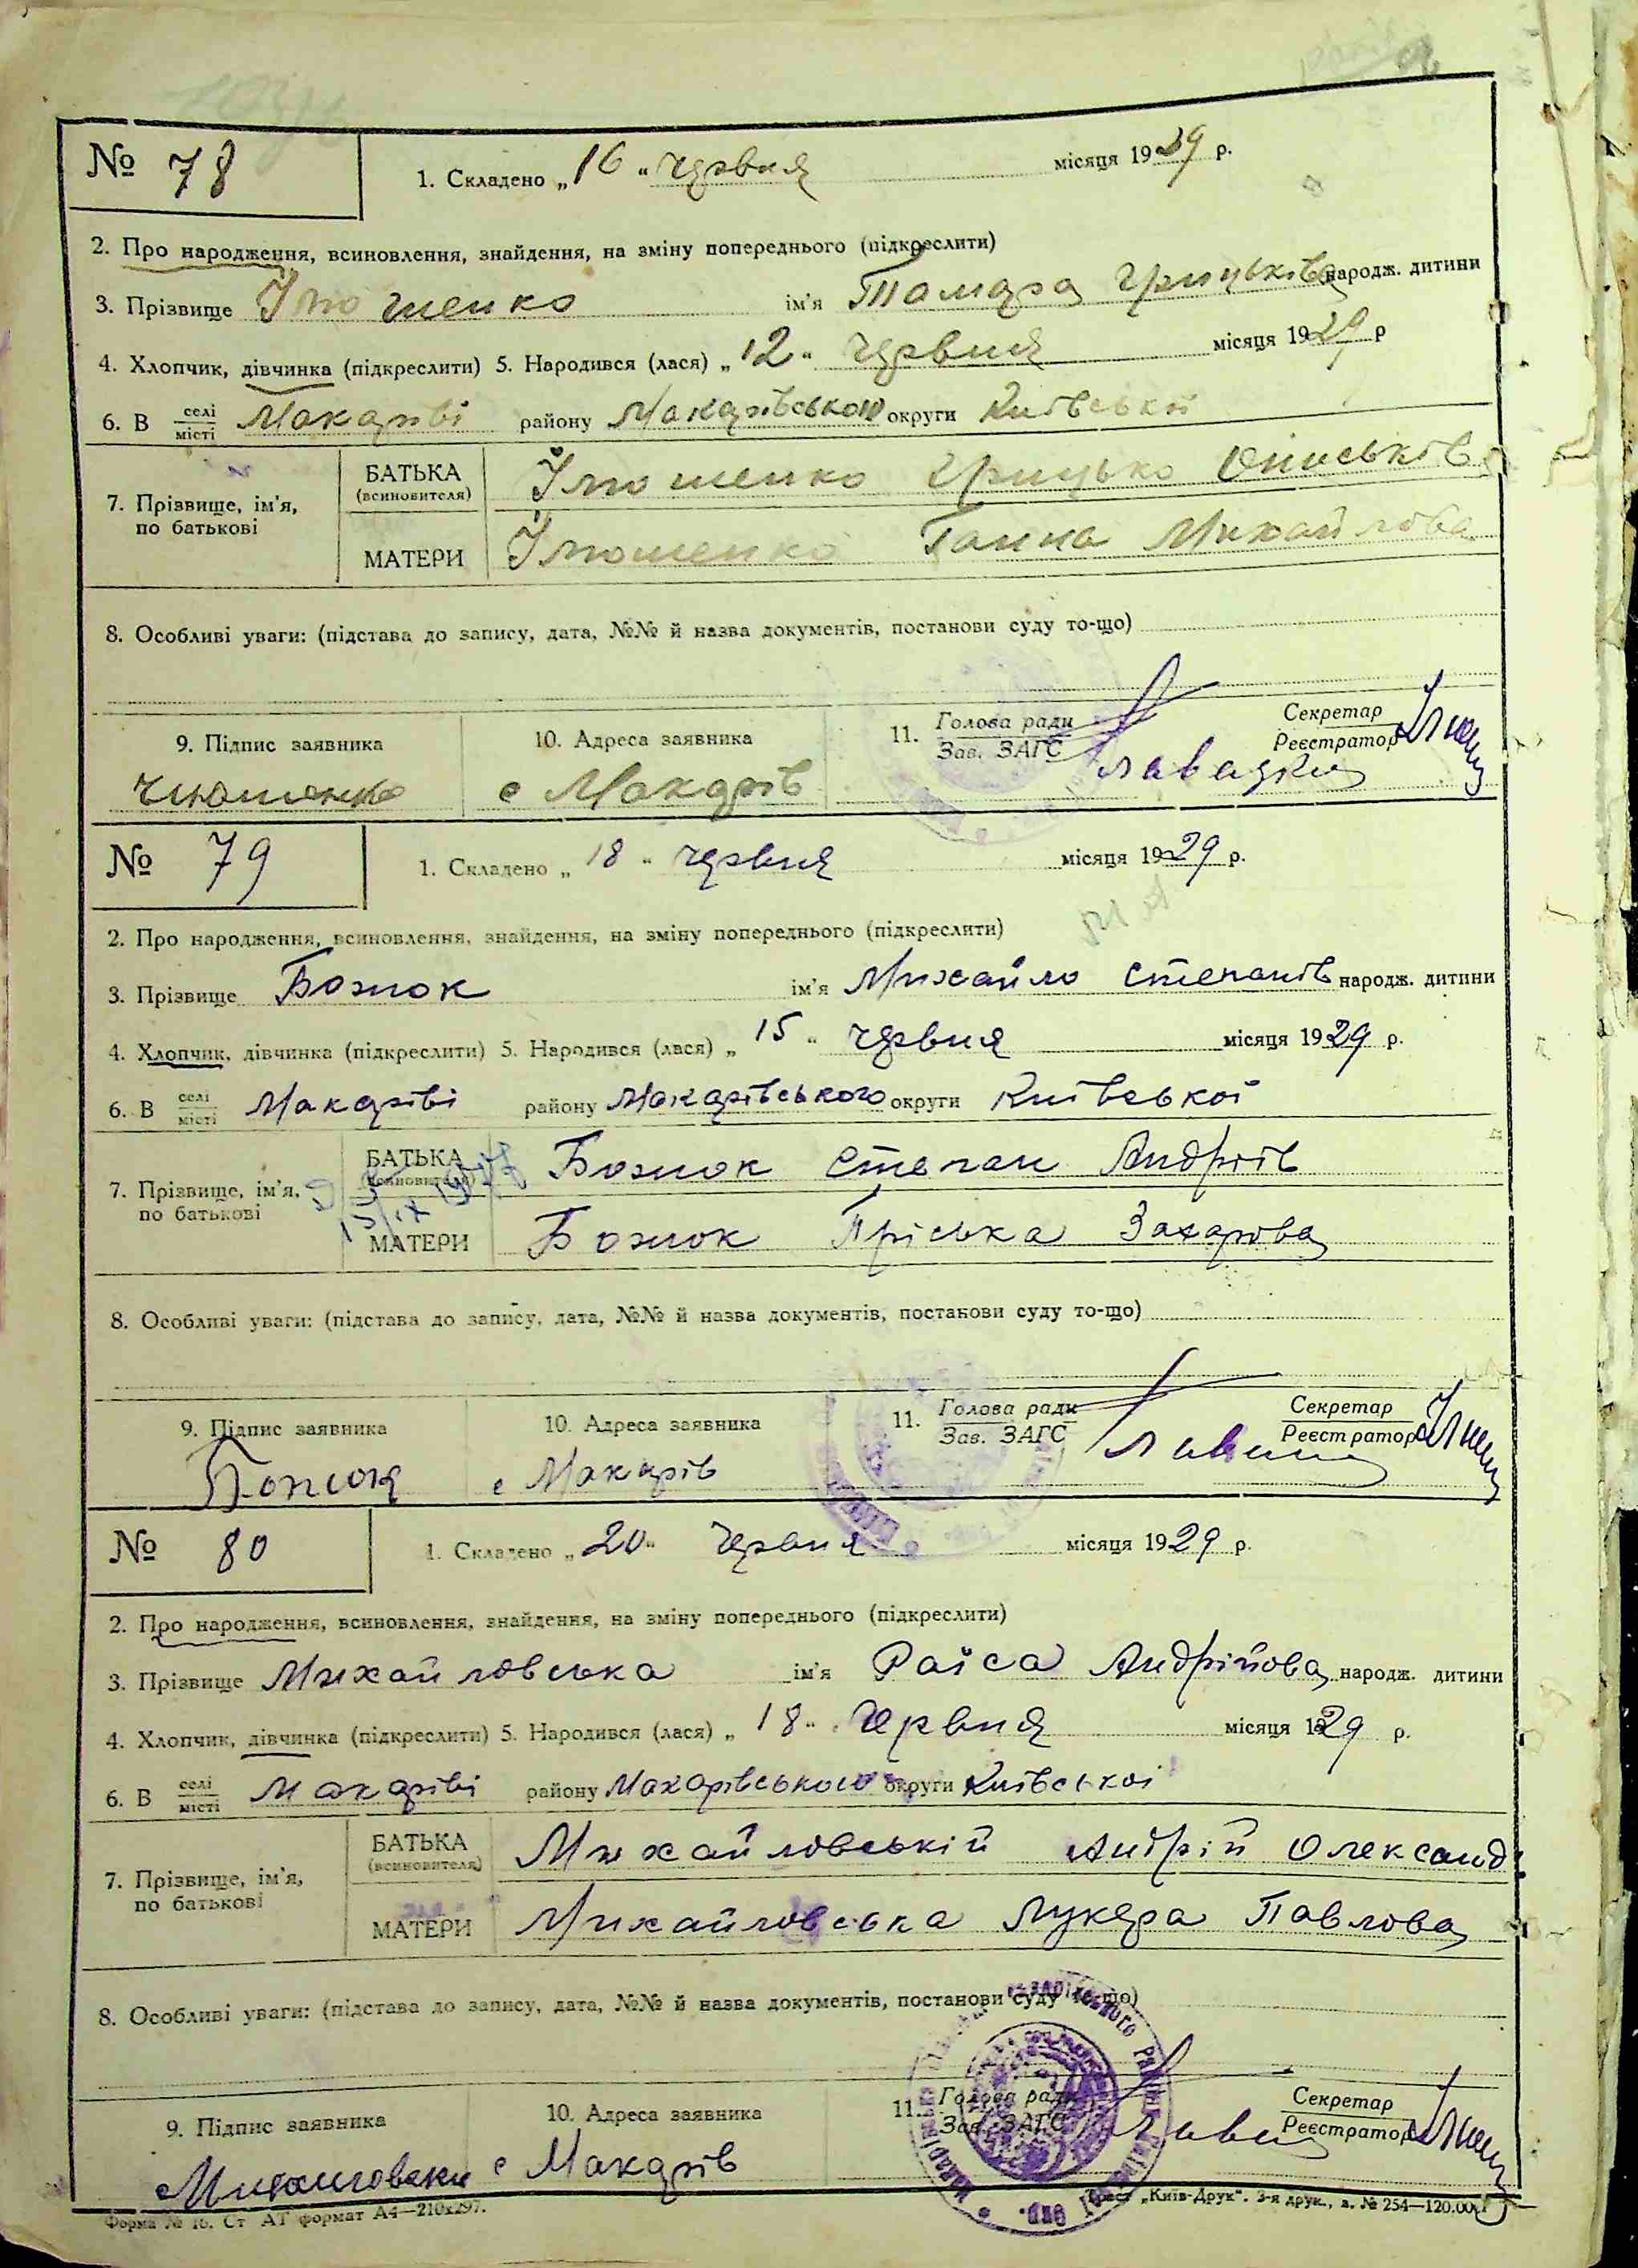 № 78
1. Складено „16“ червня місяця 1929 р.
2. Про народження, всиновлення, знайдення, на зміну попереднього (підкреслити)
3. Прізвище Ілюшенко ім'я Тамара Грицькова народж. дитини
4. Хлопчик, дівчинка (підкреслити) 5. Народився (лася) „12“ червня місяця 1929 р
6. В селі місті Макарові району Макарівського округи Київської
7. Прізвище, ім'я, по батькові
БАТЬКА (всиновителя) Ілюшенко Грицько Опанаськів
МАТЕРИ Ілюшенко Ганна Михайлова
8. Особливі уваги: (підстава до запису, дата, №№ й назва документів, постанови суду то-що)
9. Підпис заявника
10. Адреса заявника с Макарів
11. Голова ради Зав. ЗАГС
Секретар Реєстратор
№ 79
1. Складено „18“ червня місяця 1929 р.
2. Про народження, всиновлення, знайдення, на зміну попереднього (підкреслити)
3. Прізвище Божок ім'я Михайло Степанів народж. дитини
4. Хлопчик, дівчинка (підкреслити) 5. Народився (лася) „15“ червня місяця 1929 р.
6. В селі місті Макарові району Макарівського округи Київської
7. Прізвище, ім'я, по батькові
БАТЬКА (всиновителя) Божок Степан Андріїв
МАТЕРИ Божок Пріська Захарова
8. Особливі уваги: (підстава до запису, дата, №№ й назва документів, постанови суду то-що)
9. Підпис заявника
10. Адреса заявника с Макарів
11. Голова ради Зав. ЗАГС
Секретар Реєстратор
№ 80
1. Складено „20“ червня місяця 1929 р.
2. Про народження, всиновлення, знайдення, на зміну попереднього (підкреслити)
3. Прізвище Михайловська ім'я Раїса Андрійова народж. дитини
4. Хлопчик, дівчинка (підкреслити) 5. Народився (лася) „18“ червня місяця 1929 р.
6. В селі місті Макарові району Макарівського округи Київської
7. Прізвище, ім'я, по батькові
БАТЬКА (всиновителя) Михайловський Андрій Олександ
МАТЕРИ Михайловська Лукера Павлова
8. Особливі уваги: (підстава до запису, дата, №№ й назва документів, постанови суду то-що)
9. Підпис заявника
10. Адреса заявника с Макарів
11. Голова ради Зав. ЗАГС
Секретар Реєстратор
Форма № 16. Ст АТ формат А4—210х297.
Трест „Київ-Друк“. 3-я друк., з. № 254—120.000